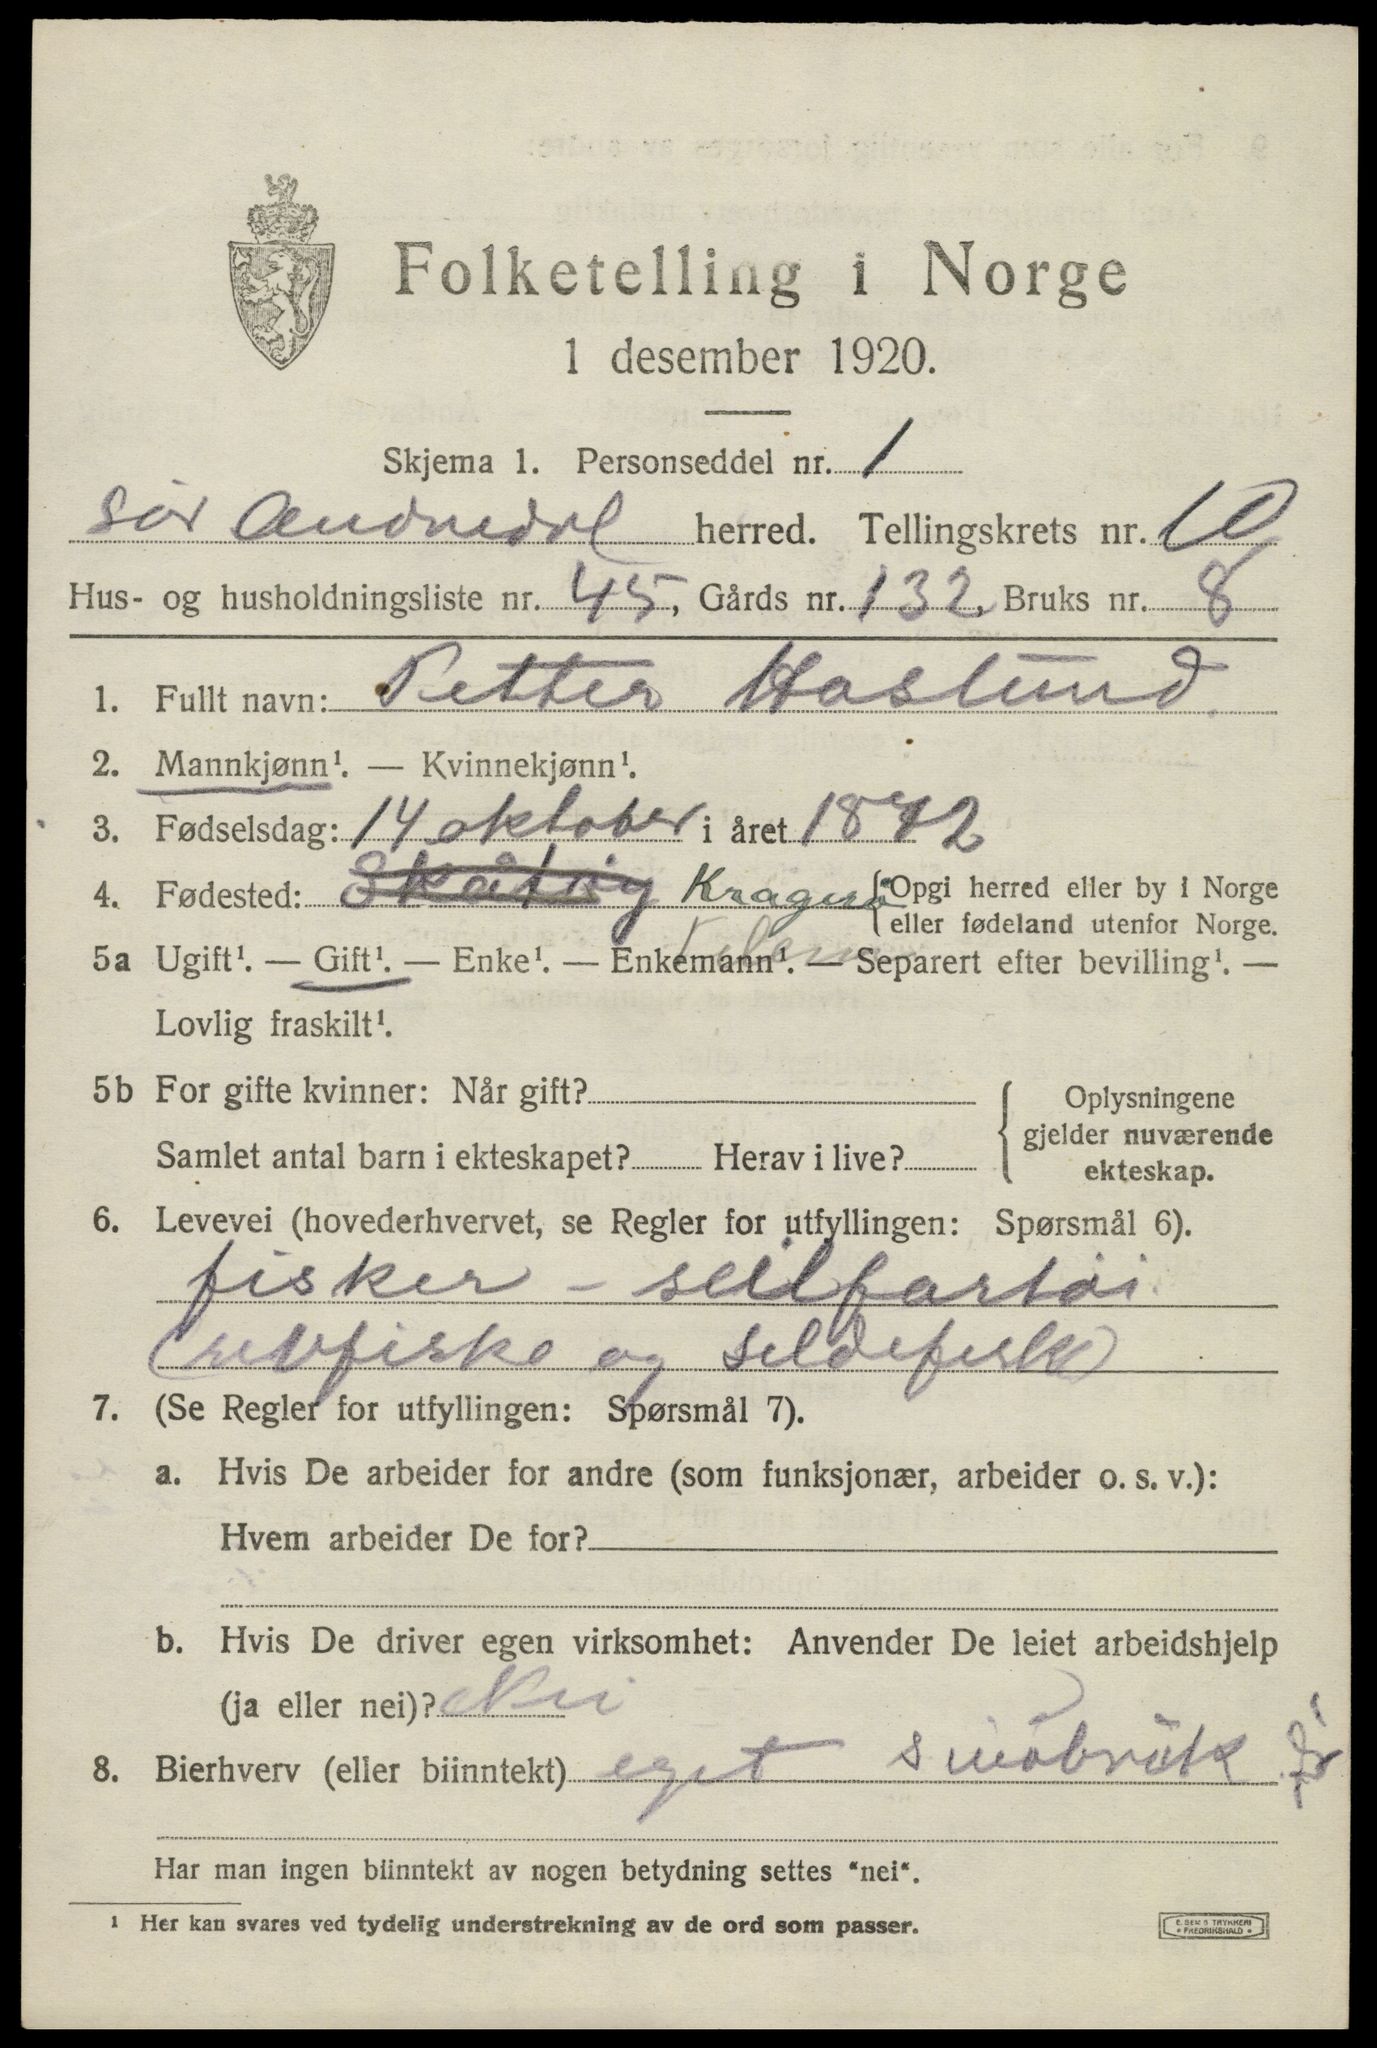 Folketelling i Norge
1 desember 1920.
Skjema 1. Personseddel nr. 1
Sør Audnedal herred. Tellingskrets nr. 10
Hus- og husholdningsliste nr. 45, Gårds nr. 132, Bruks nr. 8
1. Fullt navn: Petter Haslund.
2. Mannkjønn¹. — Kvinnekjønn¹.
3. Fødselsdag: 14 oktober i året 1872
4. Fødested: Skåtøy Kragerø Opgi herred eller by i Norge
eller fødeland utenfor Norge.
5a Ugift¹. — Gift¹. — Enke¹. — Enkemann¹. — Separert efter bevilling¹. —
Lovlig fraskilt¹.
5b For gifte kvinner: Når gift?
Samlet antal barn i ekteskapet? Herav i live?
Oplysningene
gjelder nuværende
ekteskap.
6. Levevei (hovederhvervet, se Regler for utfyllingen: Spørsmål 6).
fisker - seilfartøi
(revfiske og sildefiske)
7. (Se Regler for utfyllingen: Spørsmål 7).
a. Hvis De arbeider for andre (som funksjonær, arbeider o. s. v.):
Hvem arbeider De for?
b. Hvis De driver egen virksomhet: Anvender De leiet arbeidshjelp
(ja eller nei)? Nei
8. Bierhverv (eller biinntekt) eget småbruk
Har man ingen biinntekt av nogen betydning settes "nei".
¹ Her kan svares ved tydelig understrekning av de ord som passer.
E. SEM'S TRYKKERI
FREDRIKSHALD